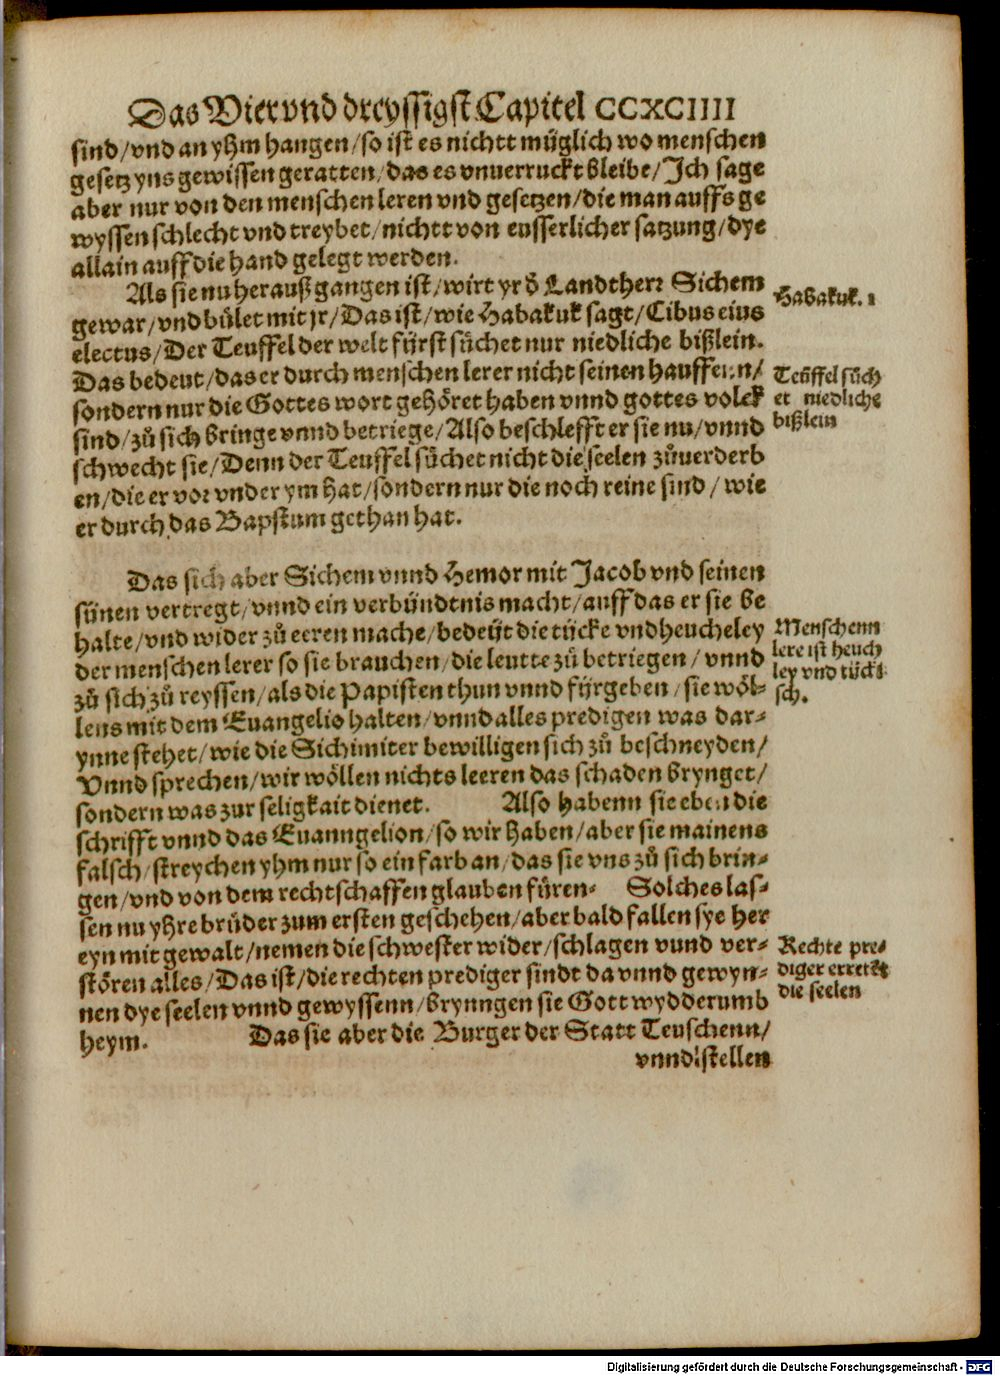 Das Vier vnd dreyssigst Capitel CCXCIIII
sind/vnd an yhm hangen/so ist es nichtt müglich wo menschen
gesetz yns gewissen geratten/das es vnuerruckt bleibe/Ich sage
aber nur von den menschen leren vnd gesetzen/die man auffs ge
wyssen schlecht vnd treybet/nichtt von eusserlicher satzung/dye
allain auff die hand gelegt werden.
Als sie nu herauß gangen ist/wirt yr d̕ Landtherr Sichem
gewar/vnd bůlet mit jr/Das ist/wie Habakuk sagt/Cibus eius
electus/Der Teuffel der welt fürst sůchet nur niedliche bißlein.
Das bedeut/das er durch menschen lerer nicht seinen hauffenn/
sondern nur die Gottes wort gehöret haben vnnd gottes volck
sind/zů sich bringe vnnd betriege/Also beschlefft er sie nu/vnnd
schwecht sie/Denn der Teuffel sůchet nicht die seelen zůuerderb
en/die er vor vnder ym hat/sondern nur die noch reine sind/wie
er durch das Bapstum gethan hat.
Habakuk. 1
Teüffel sůch
et niedliche
bißlein
Das sich aber Sichem vnnd Hemor mit Jacob vnd seinen
sünen vertregt/vnnd ein verbündtnis macht/auff das er sie be
halte/vnd wider zů eeren mache/bedeüt die tücke vnd heucheley
der menschen lerer so sie brauchen/die leutte zů betriegen/vnnd
zů sich zů reyssen/als die Papisten thun vnnd fürgeben/sie wöl-
lens mit dem Euangelio halten/vnnd alles predigen was dar-
ynne stehet/wie die Sichimiter bewilligen sich zů beschneyden/
Vnnd sprechen/wir wöllen nichts leeren das schaden brynget/
sondern was zur seligkait dienet. Also habenn sie eben die
schrifft vnnd das Euanngelion/so wir haben/aber sie mainens
falsch/streychen yhm nur so ein farb an/das sie vns zů sich brin-
gen/vnd von dem rechtschaffen glauben füren. Solches las-
sen nu yhre brüder zum ersten geschehen/aber bald fallen sye her
eyn mit gewalt/nemen die schwester wider/schlagen vnnd ver-
stören alles/Das ist/die rechten prediger sindt da vnnd gewyn-
nen dye seelen vnnd gewyssenn/brynngen sie Gott wydderumb
heym. Das sie aber die Burger der Statt Teuschenn/
vnnd stellen
Menschenn
lere ist heuch
ley vnd tücki
sch.
Rechte pre-
diger errettẽ
die seelen
Digitalisierung gefördert durch die Deutsche Forschungsgemeinschaft - DFG